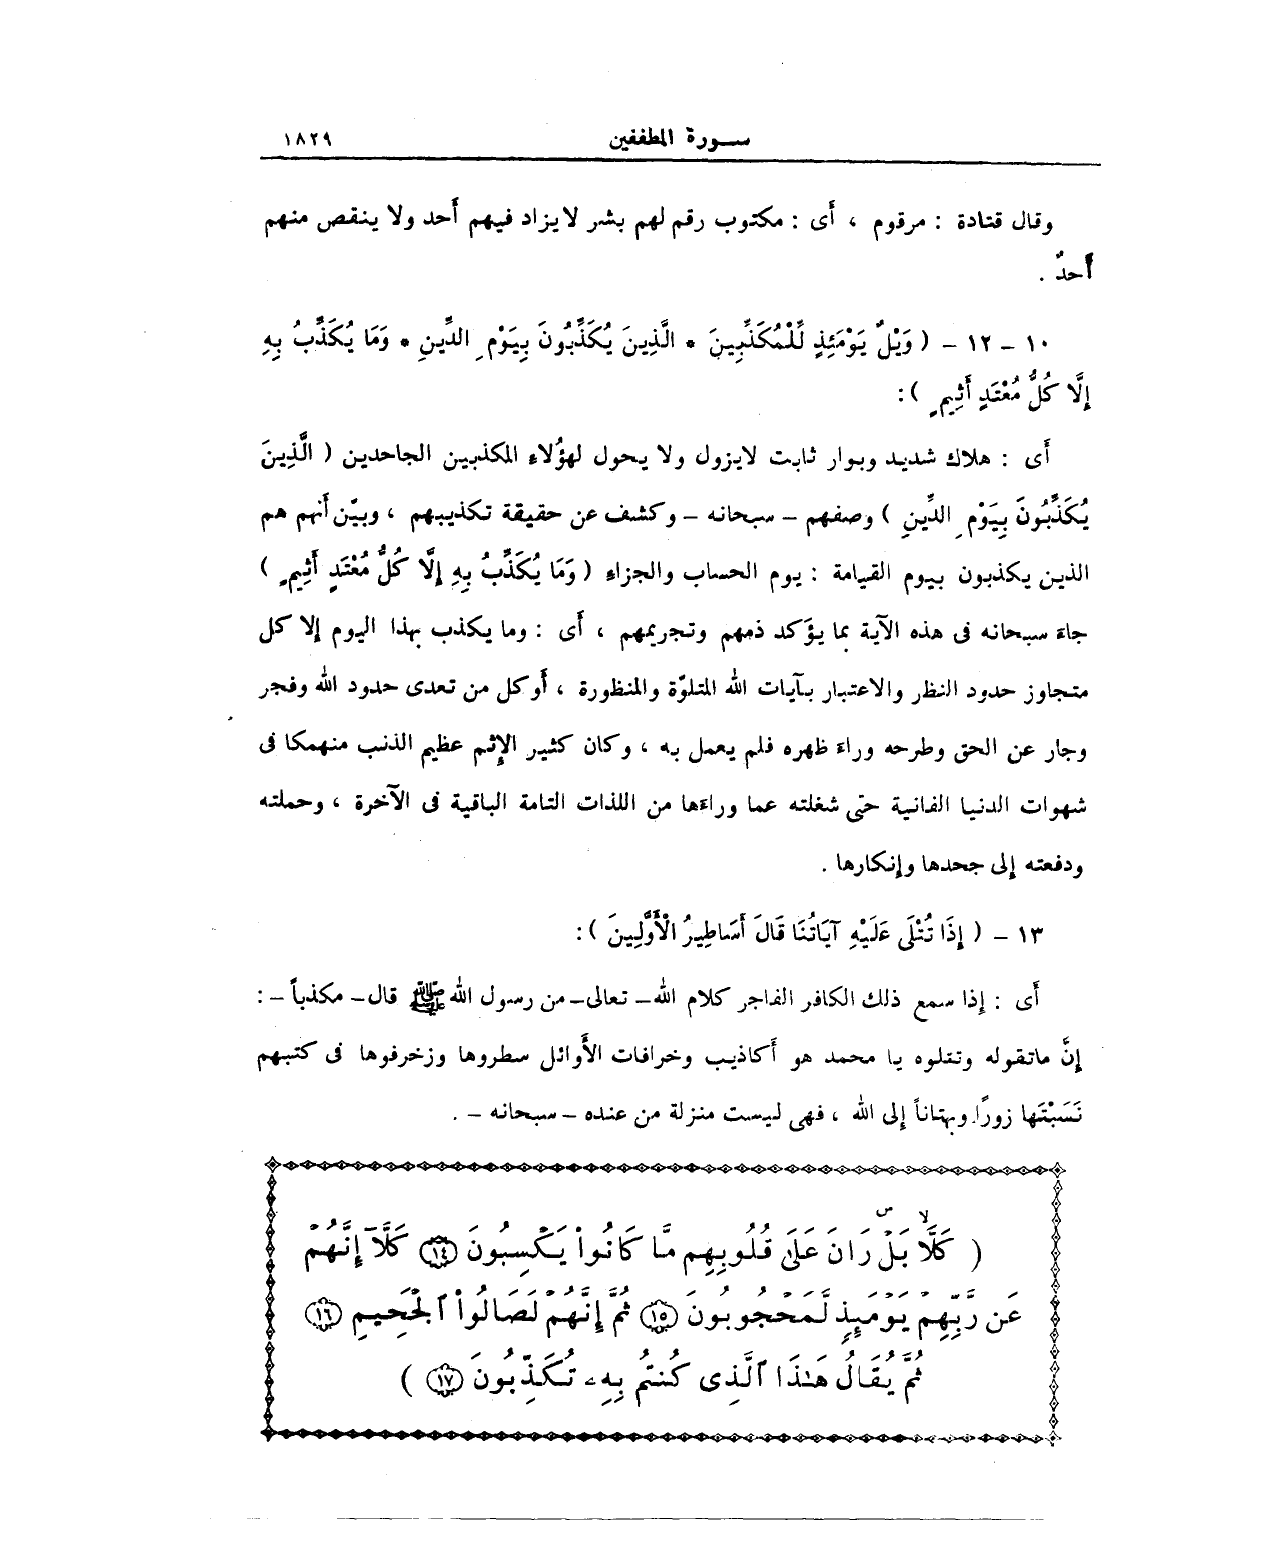 سورة المطففين ١٨٢٩
وقال قتادة : مرقوم ، أى : مكتوب رقم لهم بشر لايزاد فيهم أحد ولا ينقص منهم
أحدٌ .
١٠ – ١٢ – ( وَيْلٌ يَوْمَئِذٍ لِّلْمُكَذِّبِينَ * الَّذِينَ يُكَذِّبُونَ بِيَوْمِ الدِّينِ * وَمَا يُكَذِّبُ بِهِ
إِلَّا كُلُّ مُعْتَدٍ أَثِيمٍ ) :
أى : هلاك شديد وبوار ثابت لايزول ولا يحول لهؤلاء المكذبين الجاحدين ( الَّذِينَ
يُكَذِّبُونَ بِيَوْمِ الدِّينِ ) وصفهم – سبحانه – وكشف عن حقيقة تكذيبهم ، وبيّن أنهم هم
الذين يكذبون بيوم القيامة : يوم الحساب والجزاء ( وَمَا يُكَذِّبُ بِهِ إِلَّا كُلُّ مُعْتَدٍ أَثِيمٍ )
جاء سبحانه فى هذه الآية بما يؤكد ذمهم وتجريمهم ، أى : وما يكذب بهذا اليوم إلا كل
متجاوز حدود النظر والاعتبار بآيات الله المتلوّة والمنظورة ، أوكل من تعدى حدود الله وفجر
وجار عن الحق وطرحه وراء ظهره فلم يعمل به ، وكان كثير الإثم عظيم الذنب منهمكا فى
شهوات الدنيا الفانية حتى شغلته عما وراءها من اللذات التامة الباقية فى الآخرة ، وحملته
ودفعته إلى جحدها وإنكارها .
١٣ – ( إِذَا تُتْلَى عَلَيْهِ آيَاتُنَا قَالَ أَسَاطِيرُ الْأَوَّلِينَ ) :
أى : إذا سمع ذلك الكافر الفاجر كلام الله – تعالى – من رسول الله ﷺ قال – مكذباً – :
إنَّ ماتقوله وتتلوه يا محمد هو أكاذيب وخرافات الأوائل سطروها وزخرفوها فى كتبهم
نَسَبْتَها زورًا وبهتاناً إلى الله ، فهى ليست منزلة من عنده – سبحانه – .
( كَلَّاۖ بَلْۜ رَانَ عَلَىٰ قُلُوبِهِم مَّا كَانُواْ يَكْسِبُونَ ١٤ كَلَّآ إِنَّهُمْ
عَن رَّبِّهِمْ يَوْمَئِذٍ لَّمَحْجُوبُونَ ١٥ ثُمَّ إِنَّهُمْ لَصَالُواْ ٱلْجَحِيمِ ١٦
ثُمَّ يُقَالُ هَٰذَا ٱلَّذِى كُنتُم بِهِۦ تُكَذِّبُونَ ١٧ )